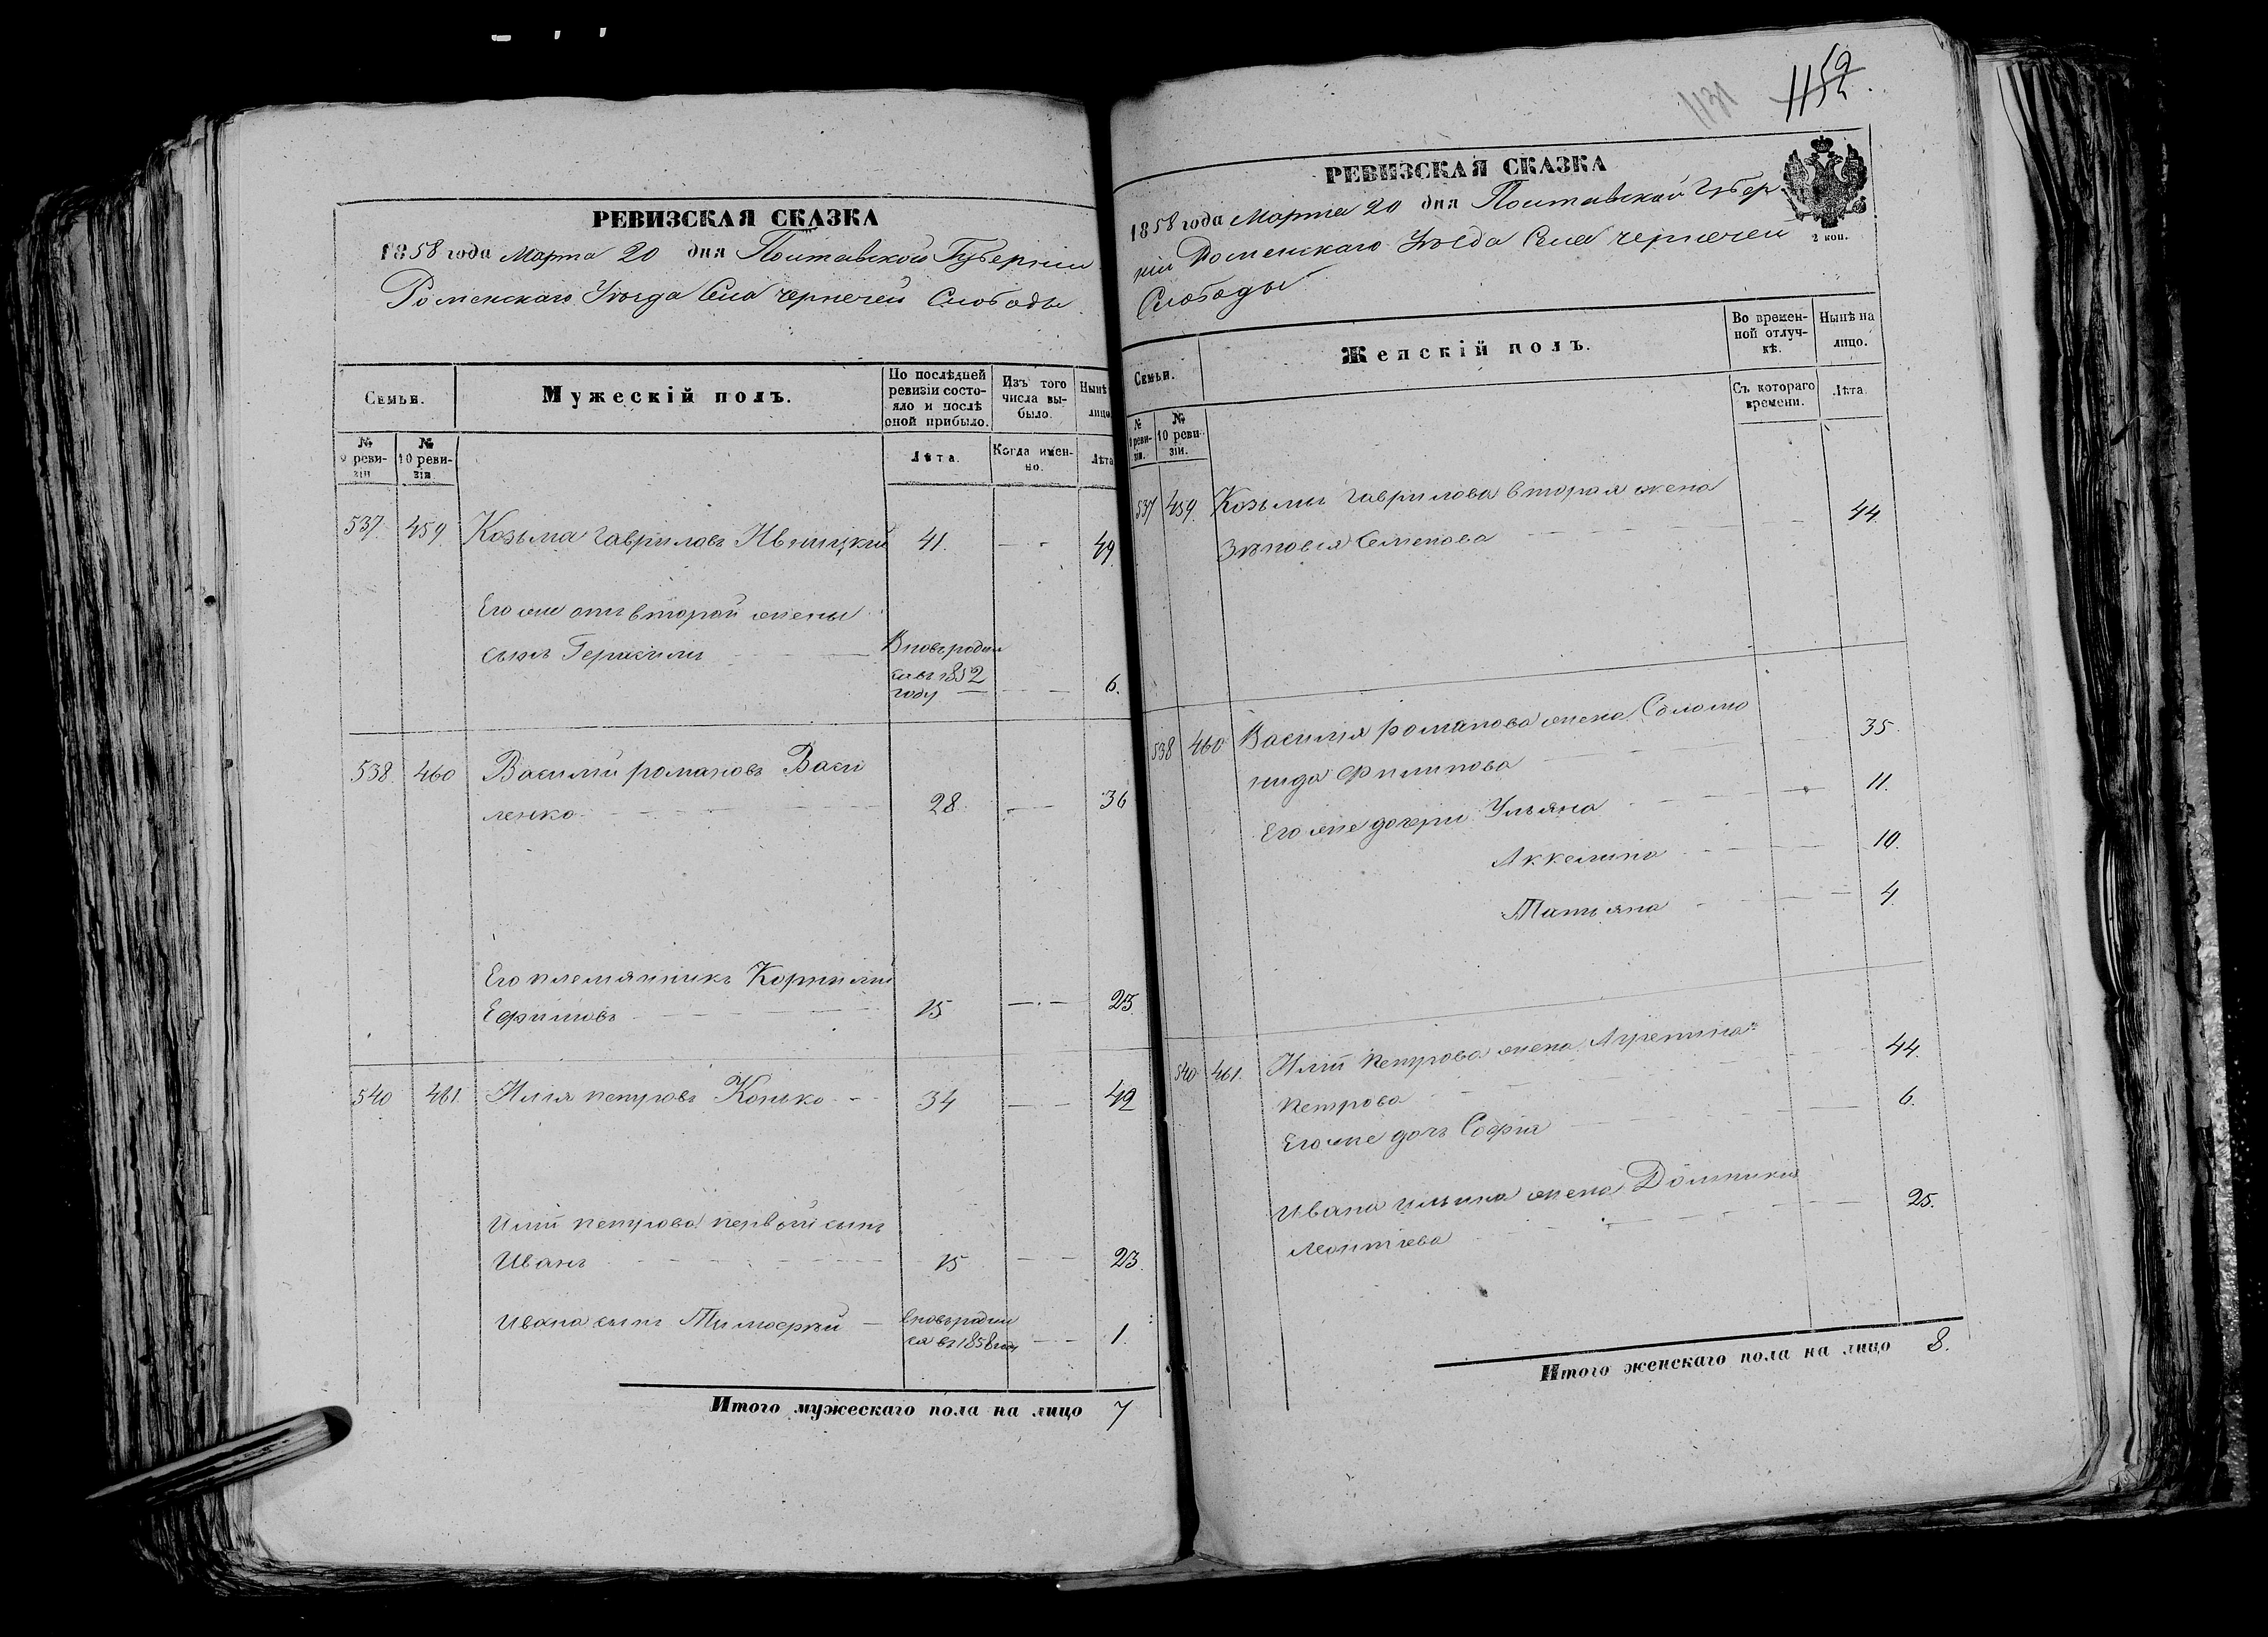 РЕВИЗСКАЯ СКАЗКА
1858 года Марта 20 дня Полтавской Губернии
Роменскаго Уезда Села Чернечей Слободы
Семьи.
Мужескій полъ.
По послѣдней ревизіи состояло и послѣ оной прибыло.
Изъ того числа выбыло.
Нынѣ лицо
№ 9 ревизіи
№ 10 ревизіи
Лѣта.
Когда именно.
Лѣта
537. 459. Козьма Гавриловъ Ивницкій 41. 49.
Его же отъ второй жены
сынъ Герасимъ Вновь родил
ся въ 1852
году 6.
538. 460 Василій Романовъ Васи
ленко 28. 36
Его племянникъ Корнилій
Ефимовъ 15 23.
540 461. Илія Петровъ Конько 34 42
Иліи Петрова первой сынъ
Иванъ 15 23.
Ивана сынъ Тимофей вновь родил
ся въ 1858 году 1.
Итого мужескаго пола на лицо 7
1131
1152.
РЕВИЗСКАЯ СКАЗКА
2 коп.
1858 года Марта 20 дня Полтавской Губер
ніи Роменскаго Уезда Села Чернечей
Слободы
Семьи.
Женскій полъ.
Во временной отлучкѣ.
Нынѣ на лицо.
№ 9 ревизіи.
№ 10 ревизіи.
Съ котораго времени.
Лѣта.
537 459. Козьмы Гаврилова вторая жена
Зѣновія Семенова 44.
538 460 Василія Романова жена Соломо
нида Филипова 35.
Его же дочери Ульяна 11.
Аккелина 10.
Татьяна 4.
540 461. Иліи Петрова жена Агрепина
Петрова 44.
Его же дочь Софія 6.
Ивана Ильина жена Домникия
Леонтіева 25.
Итого женскаго пола на лицо 8.